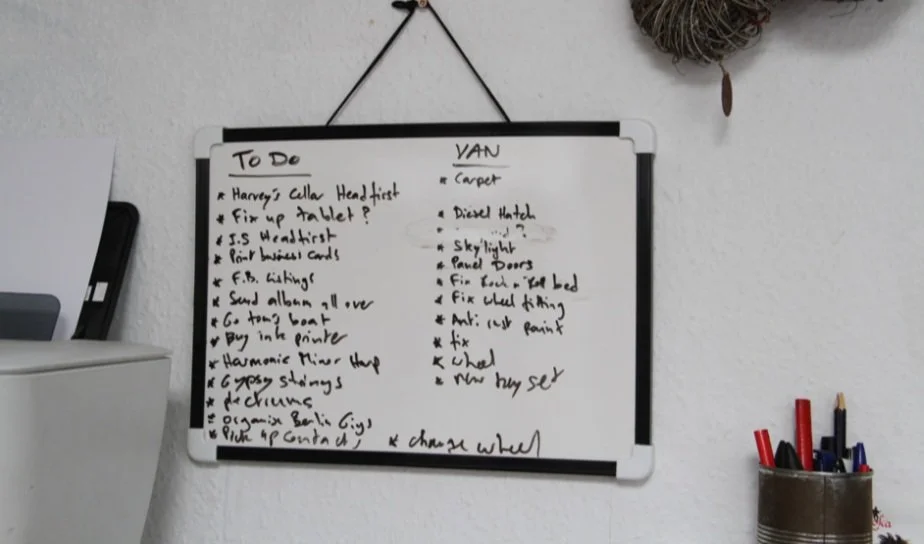 To Do
* Harvey's Cellar Headfirst
* Fix up tablet?
* I.S Headfirst
* Print business cards
* F.B. Listings
* Send album all over
* Go tom's boat
* Buy ink printer
* Harmonic Minor Harp
* Gypsy strings
*
* Organise Berlin Gigs
* Pick up contacts
VAN
* Carpet
* Diesel Hatch
?
* Skylight
* Panel Doors
* Fix Rock n Roll bed
* Fix wheel fitting
* Anti rust paint
* fix
* wheel
* new key set
* change wheel